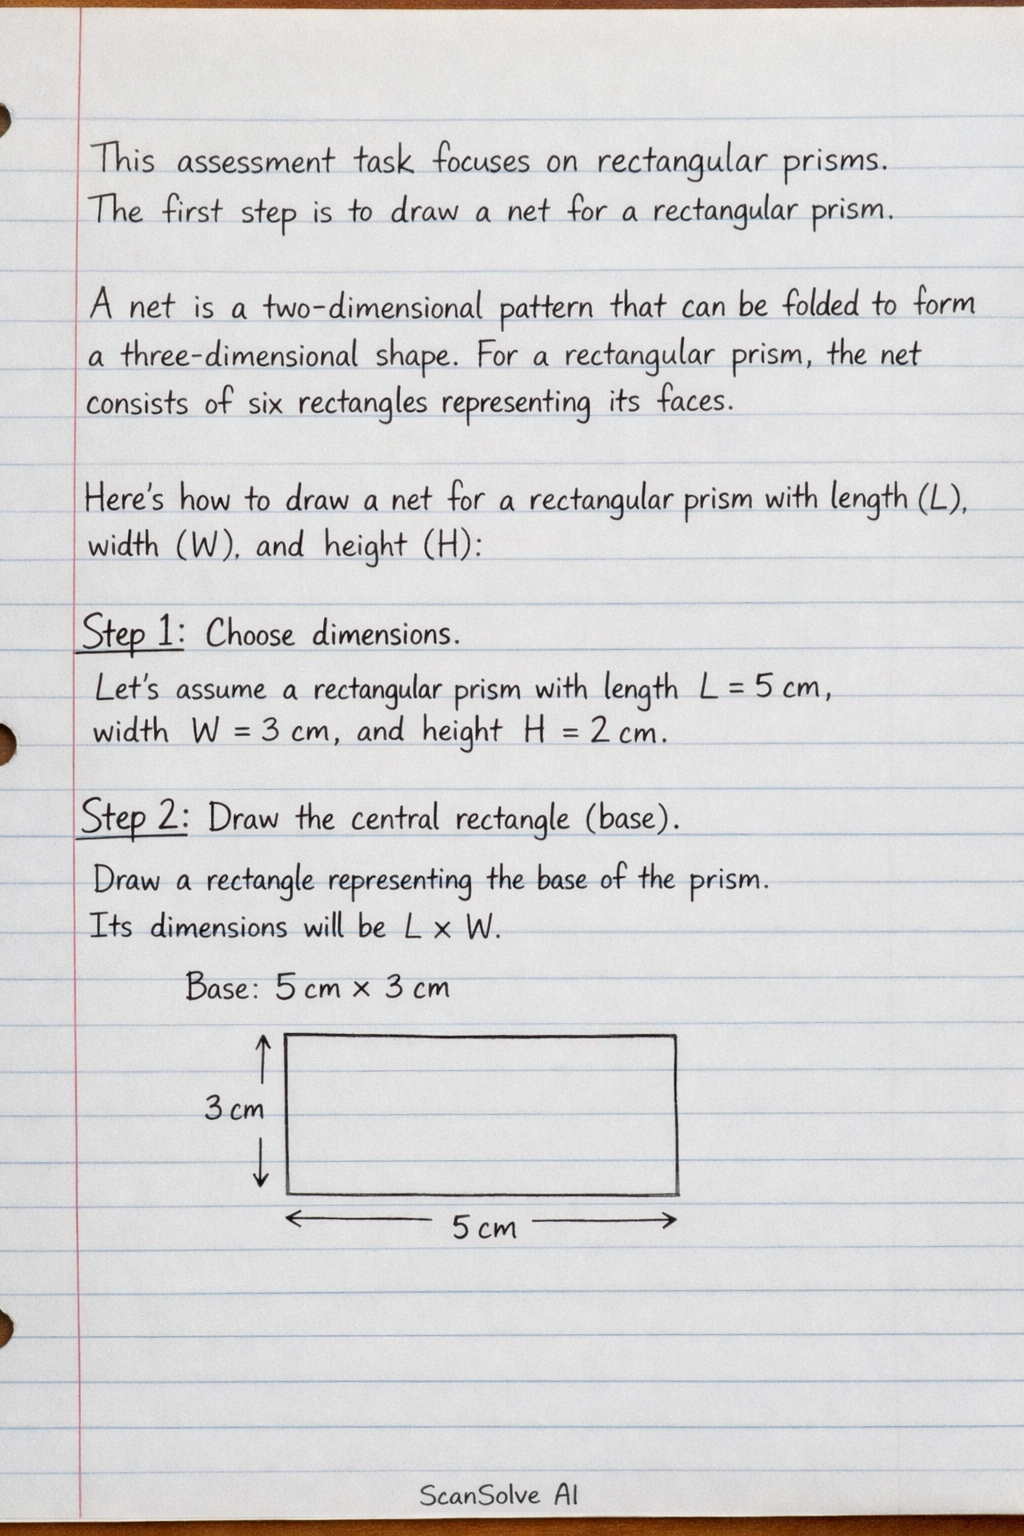 This assessment task focuses on rectangular prisms.
The first step is to draw a net for a rectangular prism.
A net is a two-dimensional pattern that can be folded to form
a three-dimensional shape. For a rectangular prism, the net
consists of six rectangles representing its faces.
Here's how to draw a net for a rectangular prism with length (L),
width (W), and height (H):
Step 1: Choose dimensions.
Let's assume a rectangular prism with length L = 5 cm,
width W = 3 cm, and height H = 2 cm.
Step 2: Draw the central rectangle (base).
Draw a rectangle representing the base of the prism.
Its dimensions will be L × W.
Base: 5 cm × 3 cm
3 cm
5 cm
ScanSolve AI